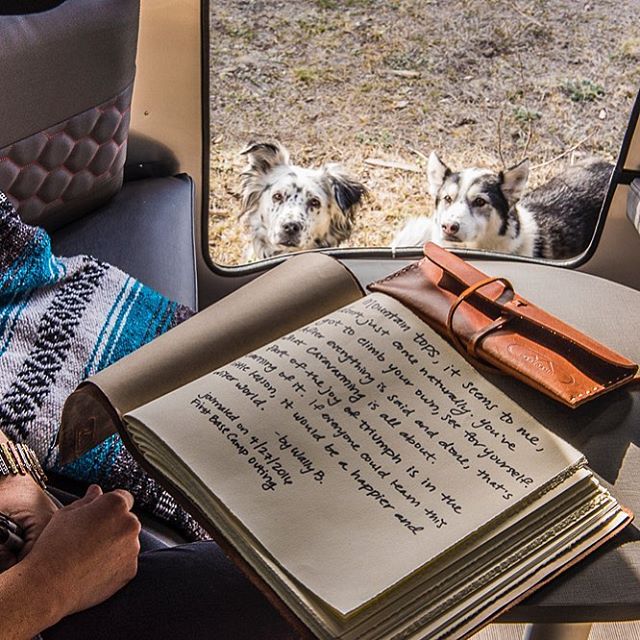 Mountain tops, it seems to me,
don't just come naturally. You've
got to climb your own, see for yourself.
After everything is said and done, that's
what caravanning is all about.
Part of the joy of triumph is in the
earning of it. If everyone could learn this
little lesson, it would be a happier and
wiser world.
by Wally B.
johnnaked on 4/27/2014
First Base Camp Outing